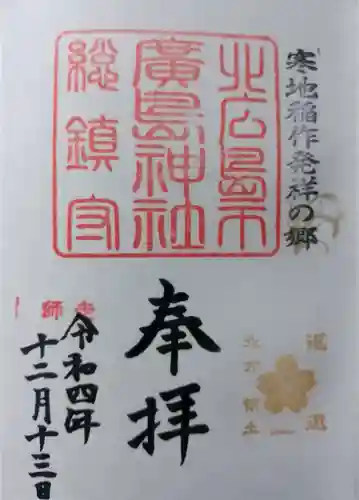 寒地稲作発祥の郷
北広島市
廣島神社
総鎮守
奉拝
令和四年
十二月十三日